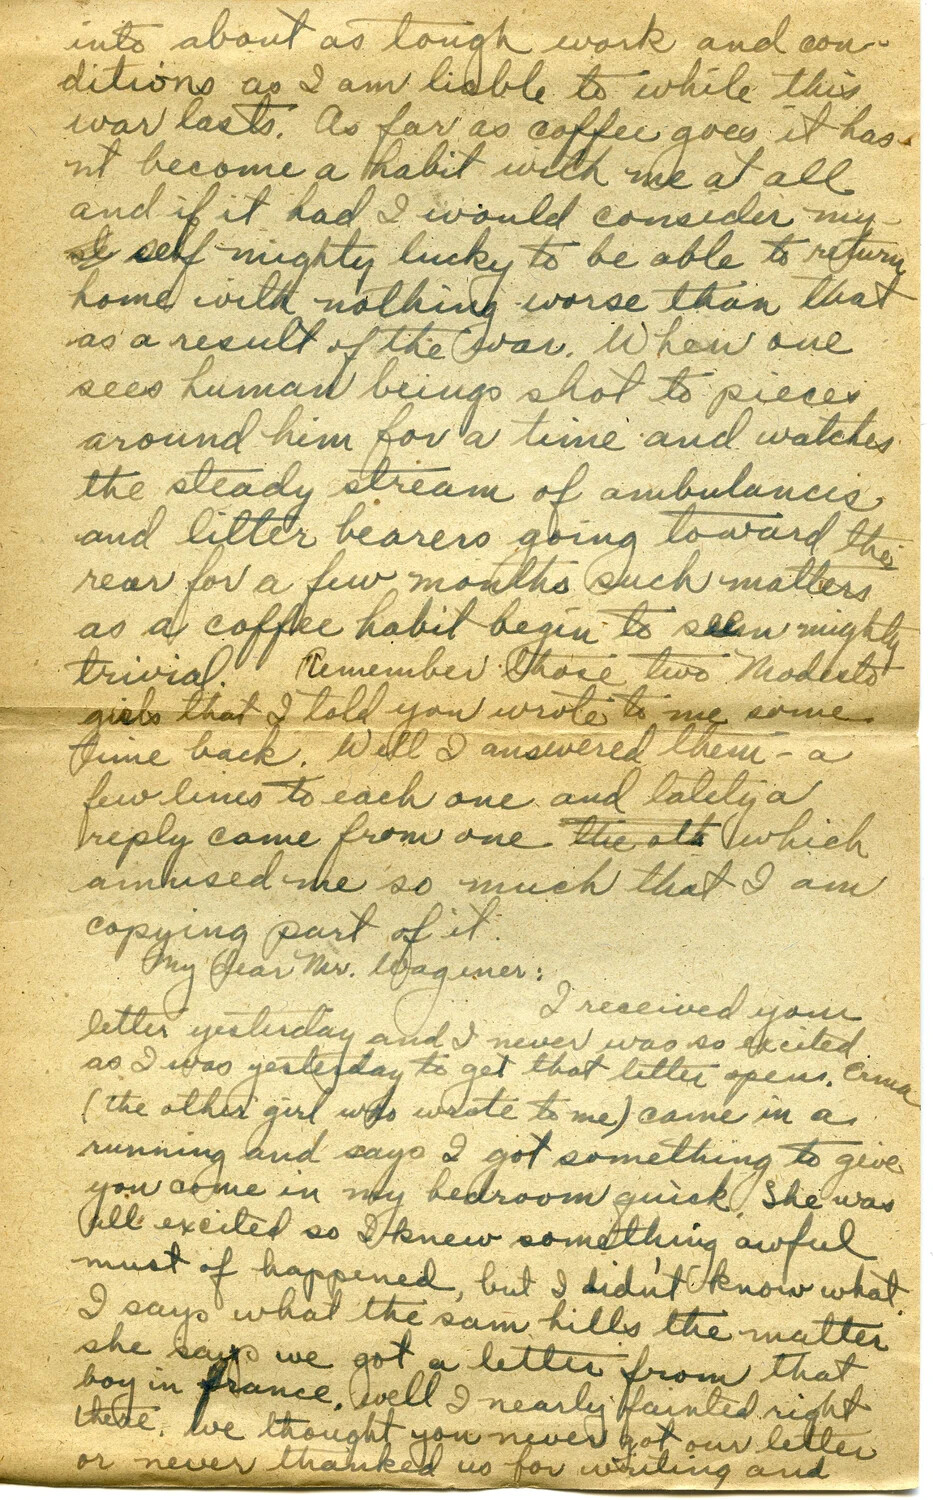 into about as tough work and con-
ditions as I am liable to while this
war lasts. As far as coffee goes it has-
nt become a habit with me at all
and if it had I would consider my-
self mighty lucky to be able to return
home with nothing worse than that
as a result of the war. When one
sees human beings shot to pieces
around him for a time and watches
the steady stream of ambulances
and litter bearers going toward the
rear for a few months such matters
as a coffee habit begin to seem mighty
trivial. Remember those two Modesto
girls that I told you wrote to me some
time back. Well I answered them - a
few lines to each one and lately a
reply came from one the oth which
amused me so much that I am
copying part of it.
My Dear Mr. Wagener:
I received your
letter yesterday and I never was so excited
as I was yesterday to get that letter opens. Erma
(the other girl who wrote to me) came in a
running and says I got something to give
you come in my bedroom quick. She was
all excited so I knew something awful
must of happened, but I didn't know what.
I says what the sam hills the matter
she says we got a letter from that
boy in france. Well I nearly fainted right
there. We thought you never got our letter
or never thanked us for writing and